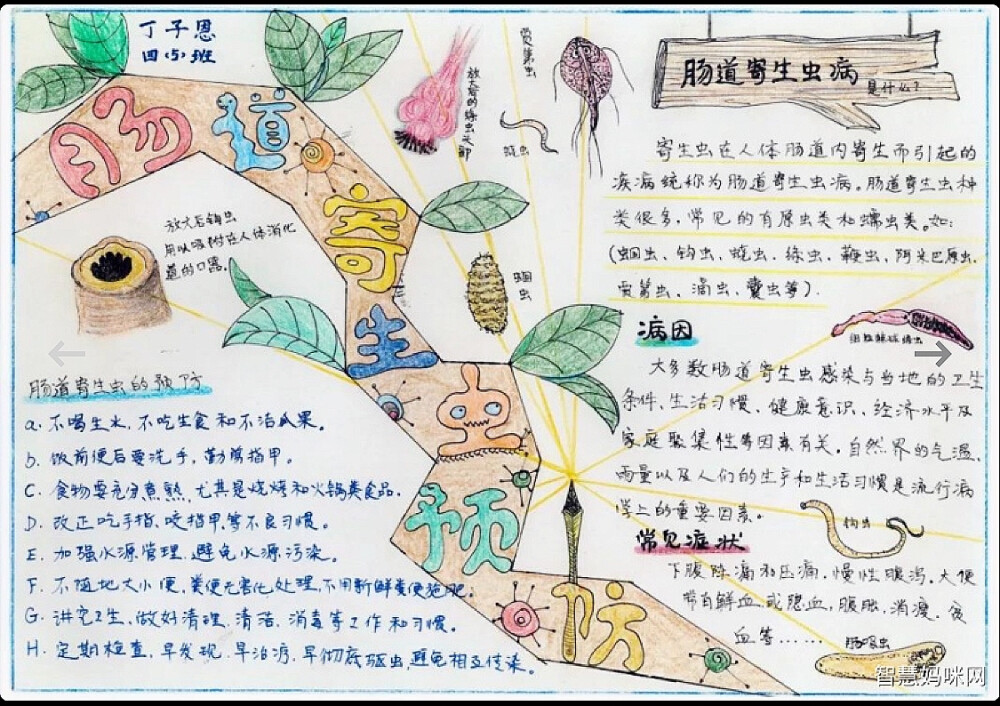 丁子恩
四(5)班
肠道寄生虫预防
放大后的绦虫头部
贾第虫
蛲虫
肠道寄生虫病
是什么?
寄生虫在人体肠道内寄生而引起的
疾病统称为肠道寄生虫病。肠道寄生虫种
类很多,常见的有原虫类和蠕虫类。如:
(蛔虫、钩虫、蛲虫、绦虫、鞭虫、阿米巴原虫、
贾第虫、滴虫、囊虫等).
放大后钩虫
用以吸附在人体消化
道的口器.
蛔虫
病因
大多数肠道寄生虫感染与当地的卫生
条件、生活习惯、健康意识、经济水平及
家庭聚集性等因素有关。自然界的气温、
雨量以及人们的生产和生活习惯是流行病
学上的重要因素。
钩虫
常见症状
下腹阵痛和压痛,慢性腹泻,大便
带有鲜血或脓血,腹胀,消瘦,贫
血等……
肠吸虫
肠道寄生虫的预防
a. 不喝生水,不吃生食和不洁瓜果。
b. 饭前便后要洗手,勤剪指甲。
C. 食物要充分煮熟,尤其是烧烤和火锅类食品.
D. 改正吃手指、咬指甲等不良习惯。
E. 加强水源管理,避免水源污染。
F. 不随地大小便,粪便无害化处理,不用新鲜粪便施肥.
G. 讲究卫生,做好清理、清洁、消毒等工作和习惯。
H. 定期检查,早发现,早治疗,早彻底驱虫避免相互传染。
智慧妈咪网